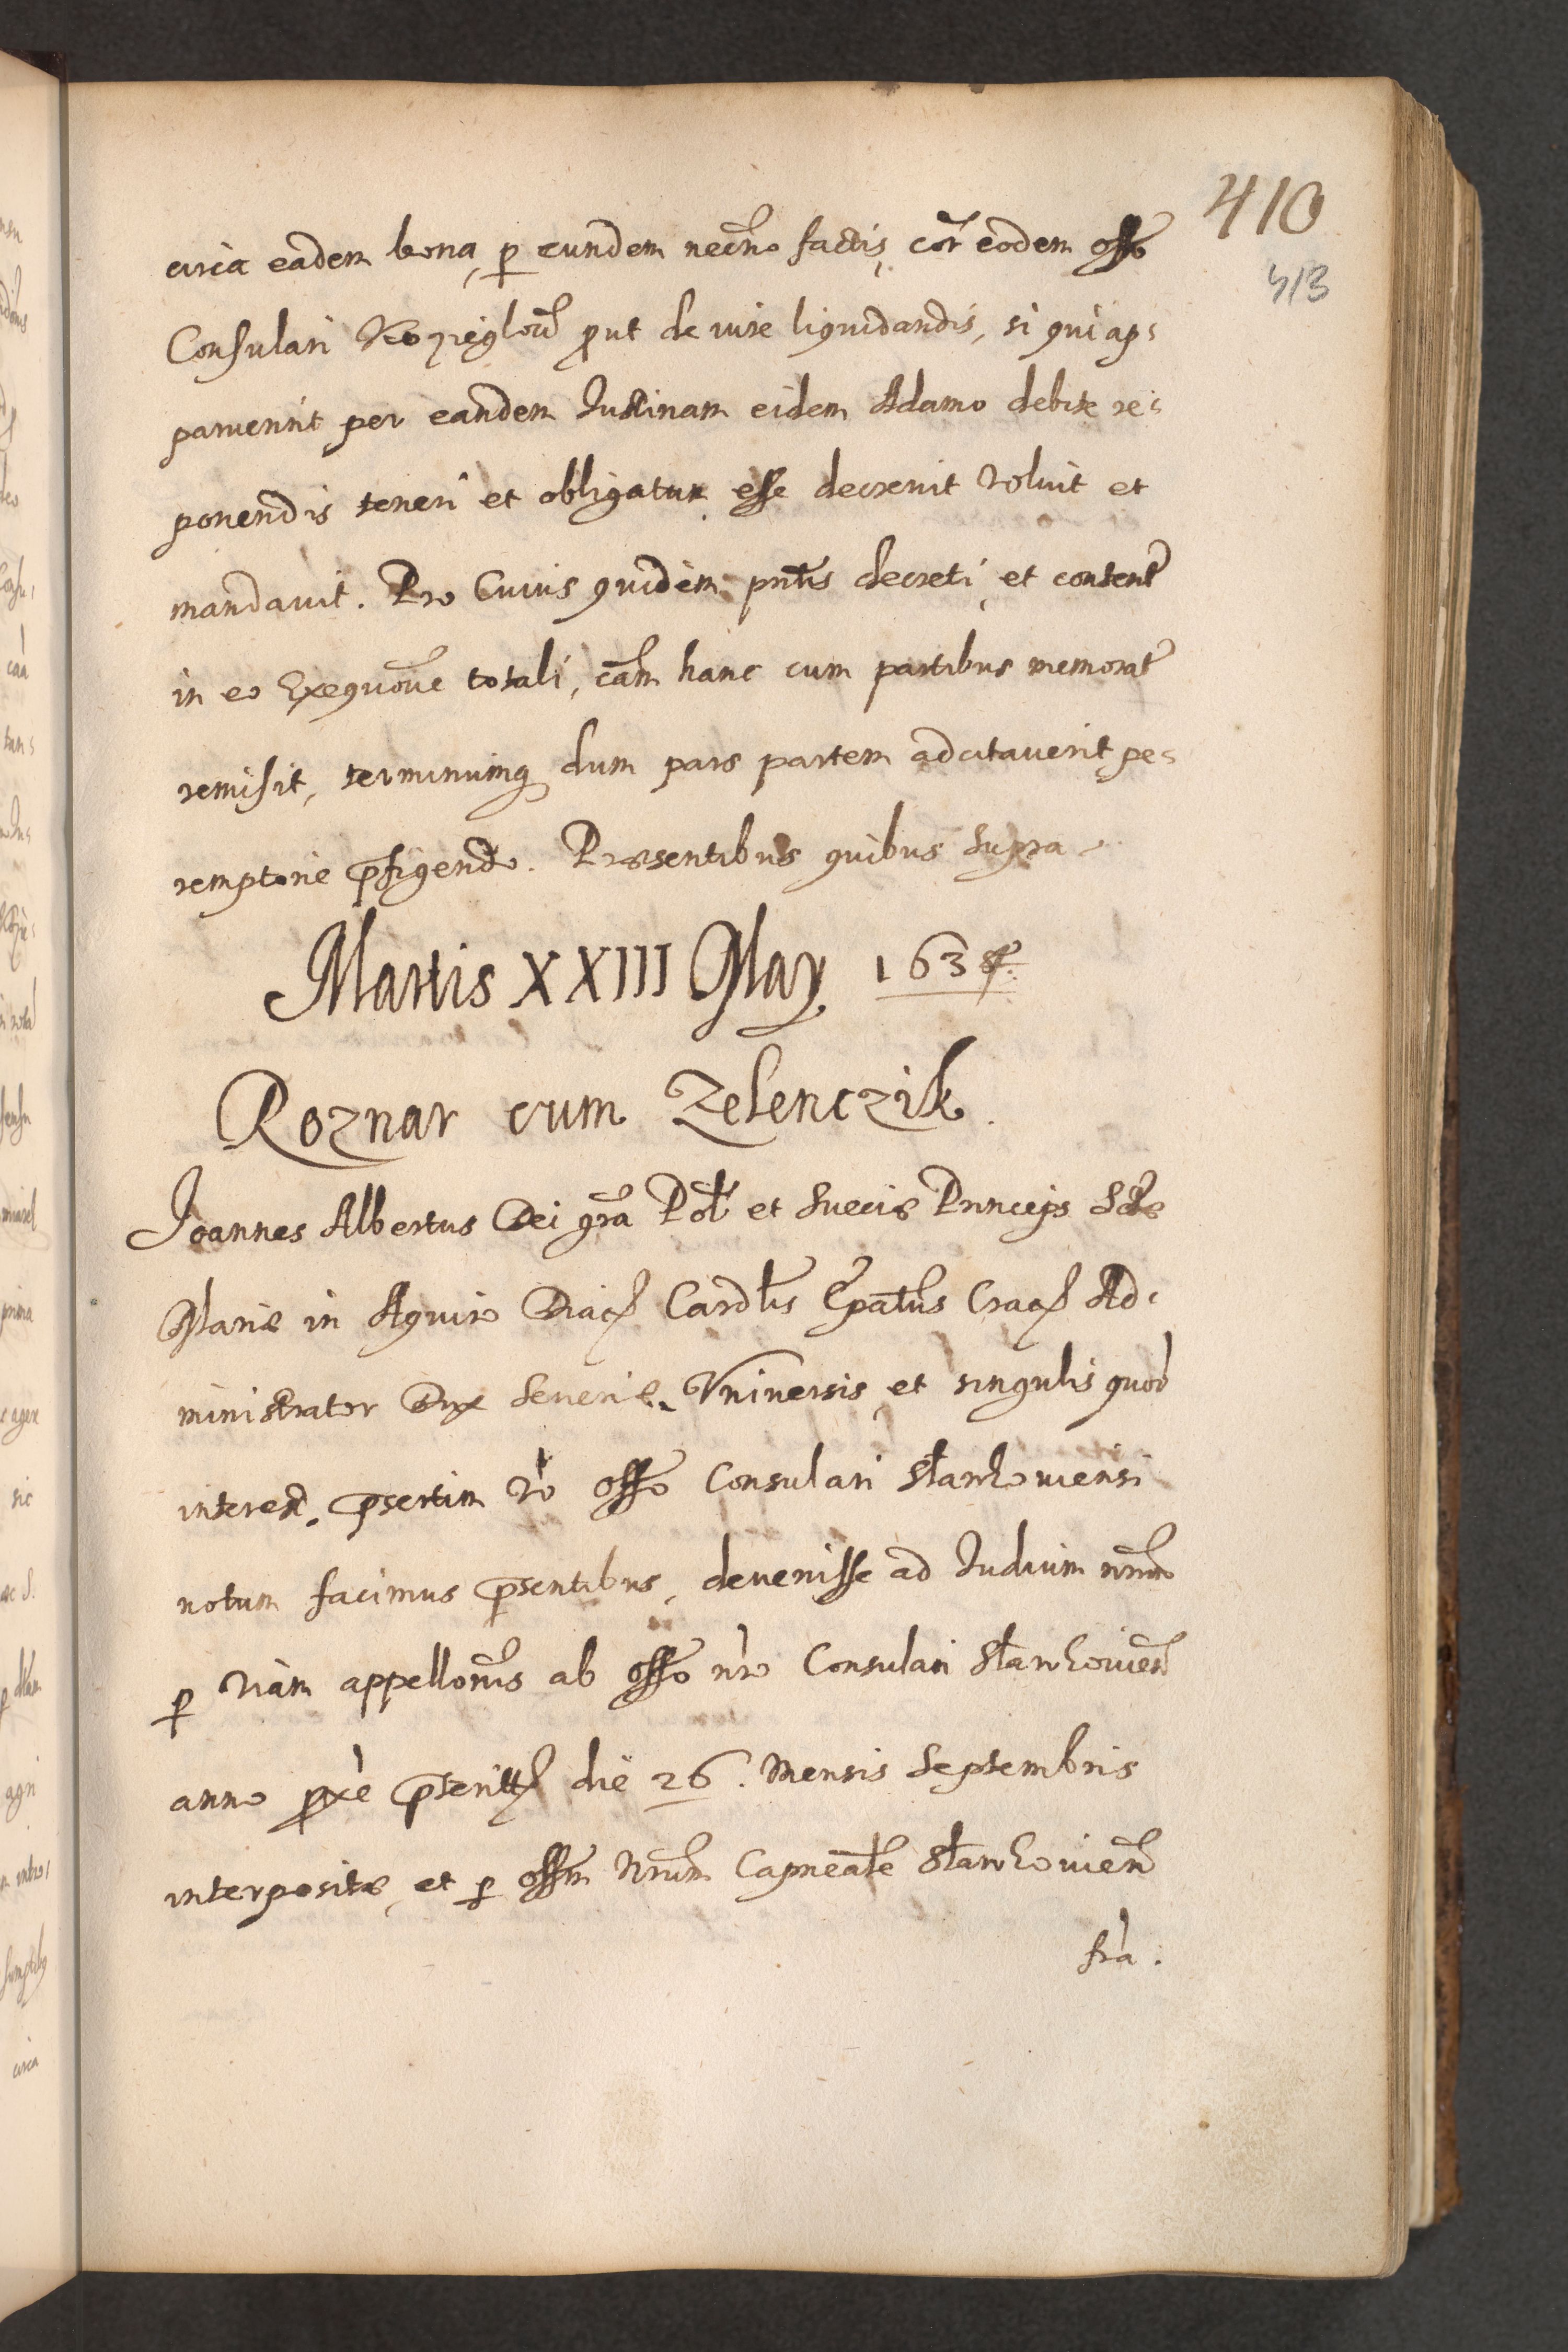 410
413
circa eadem bona, p eundem necno factis, cor eodem offo
Consulari Kozieglow prout de iure liquidandis, si qui ap:
paruerint per eandem Iustinam eidem Adamo debite re:
ponendis teneri et obligatum esse decrevit voluit et
mandavit. Pro Cuius quidem pntis decreti, et content
in eo Exequone totali, cam hanc cum partibus memorat
remisit, terminumq dum pars partem adcitaverit, pe:
remptorie pfigendo. Præsentibus quibus supra
Martis XXIII May 1634.
Roznar cum Zelenczik.
Joannes Albertus Dei gra Pol et Sueciæ Princeps Sctæ
Mariæ in Aquiro Diac Cardlis Epatus Crac Ad:
ministrator Dux Severiæ. Vniversis et singulis quor
interest. psertim vo offo Consulari Slawkoviensi
notum facimus psentibus, devenisse ad Iudium nrum
p viam appellonis ab offo nro Consulari Slawkovien
anno pxe pterit die 26. Mensis Septembris
interpositæ, et p offm Nrum Capneale Slawkovien
fra.